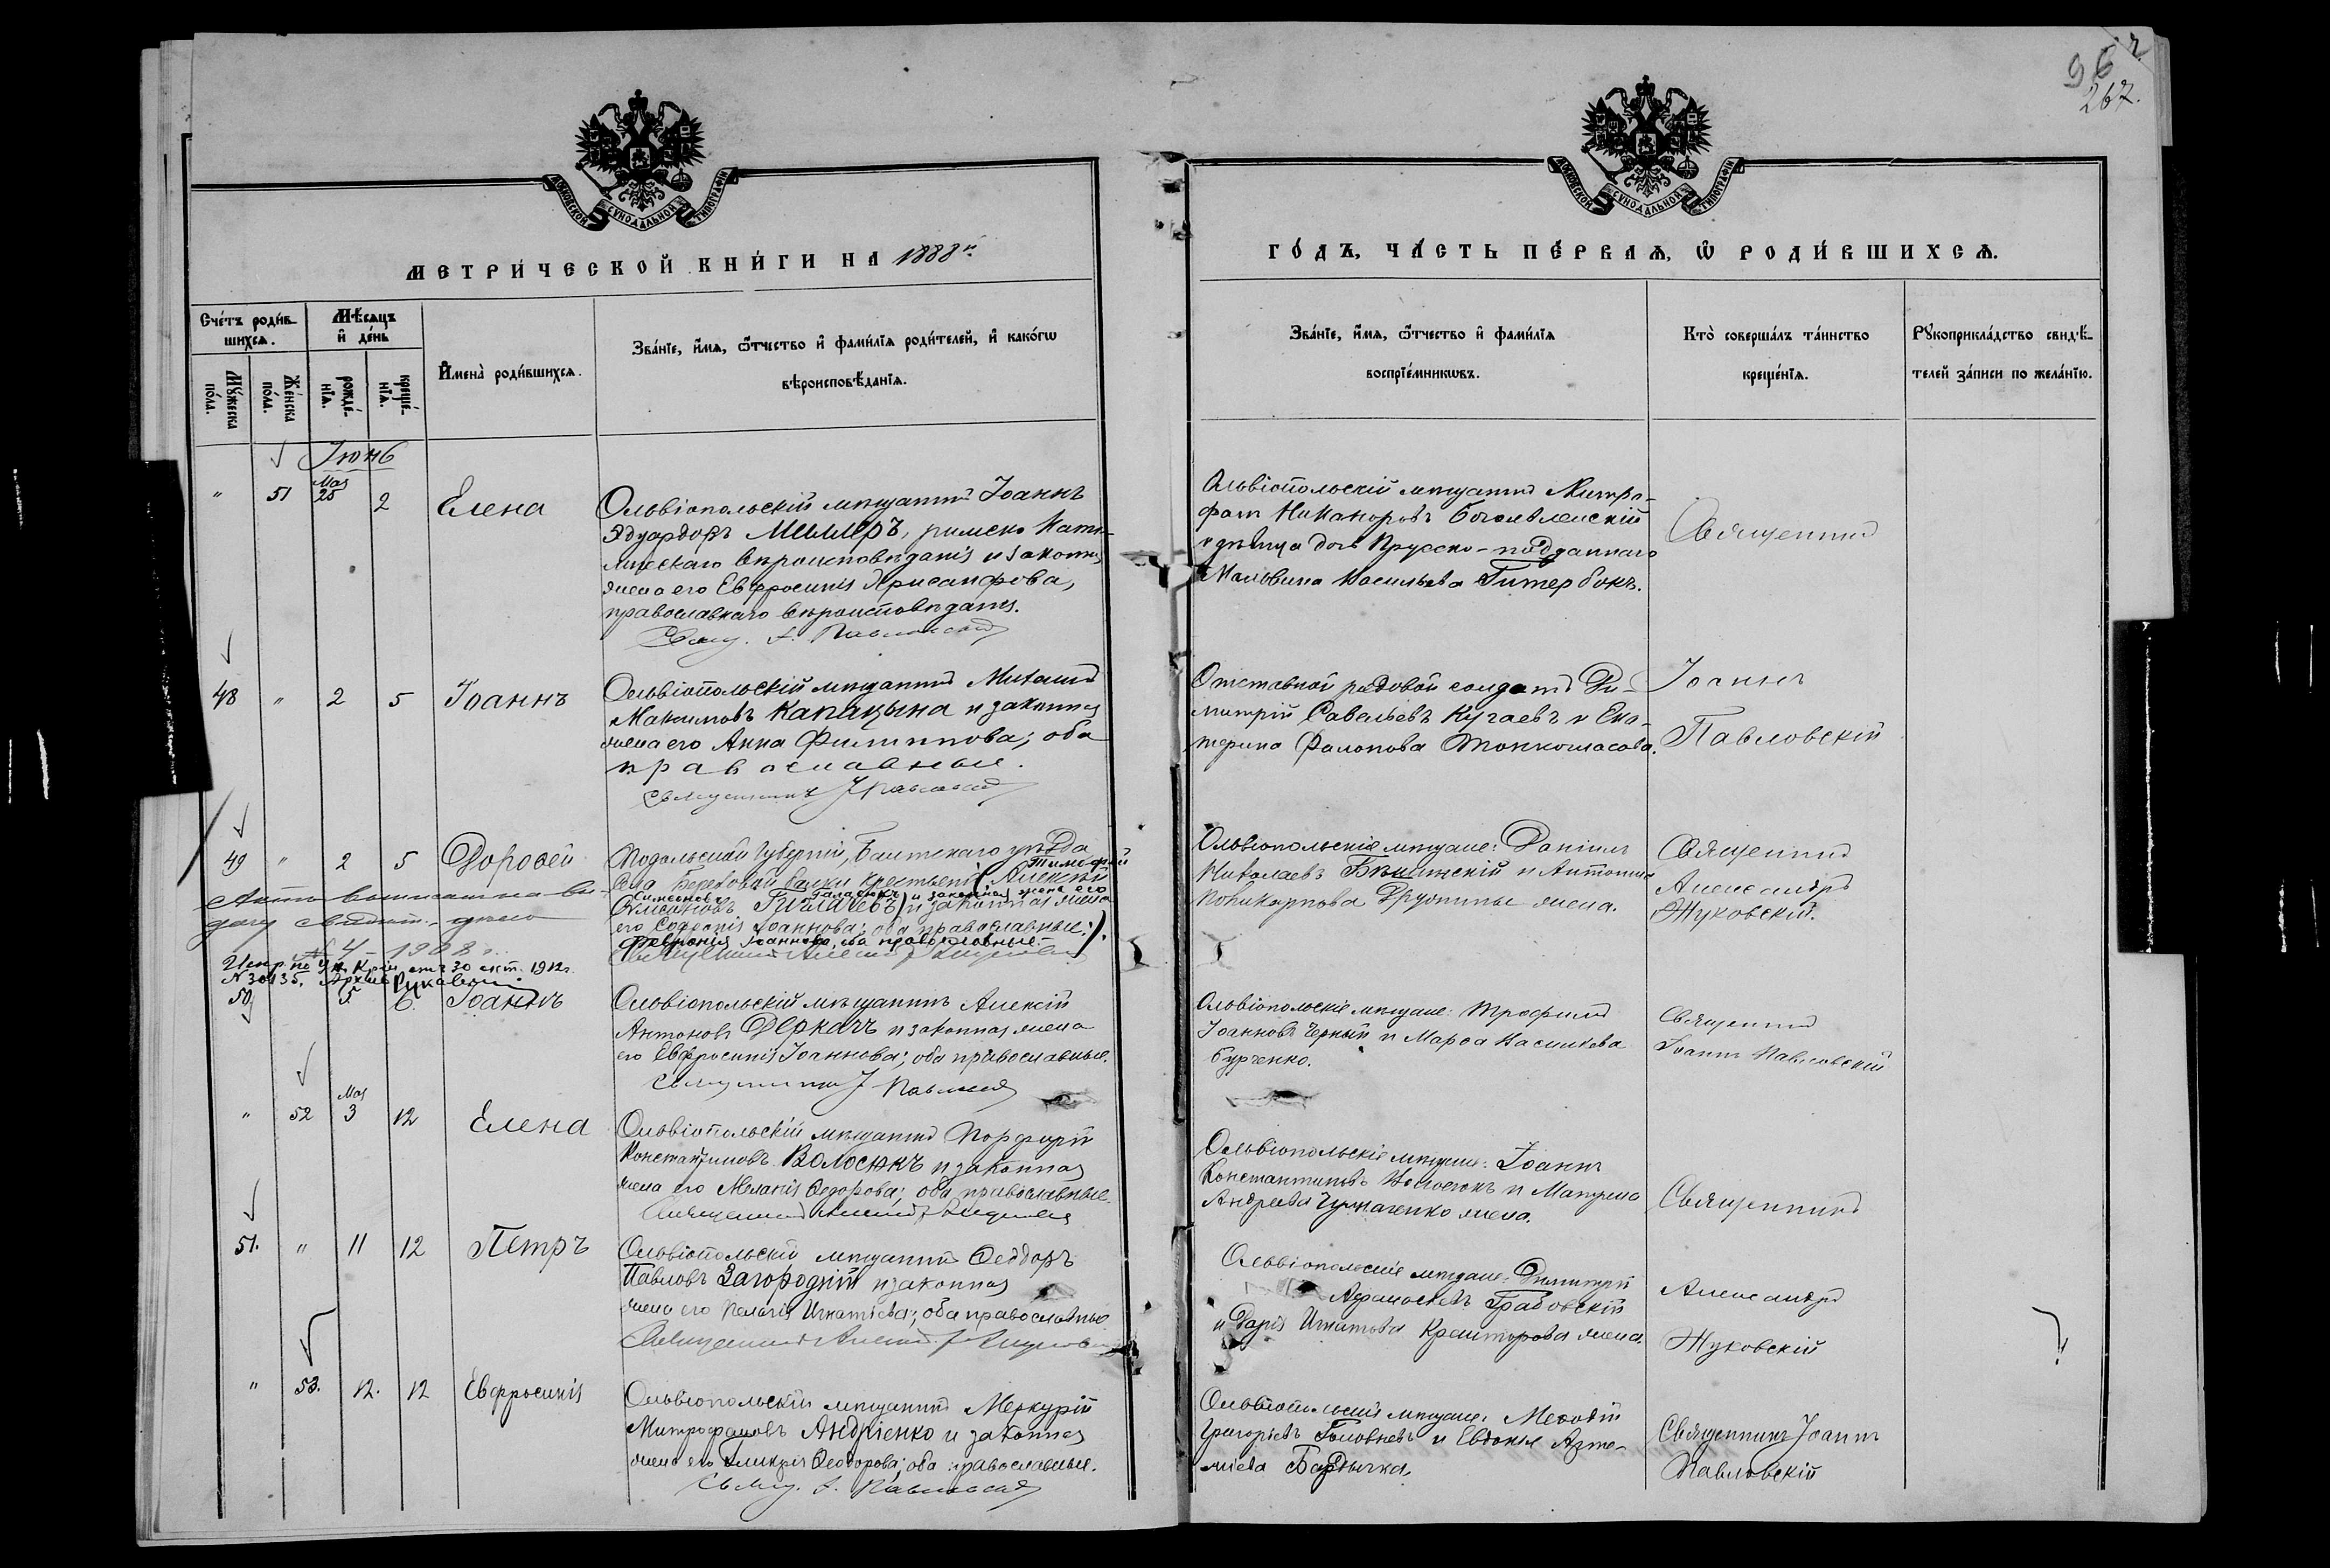 96 2
267.
МОСКОВСКОЙ СѴНОДАЛЬНОЙ ТИПОГРАФІИ
МОСКОВСКОЙ СѴНОДАЛЬНОЙ ТИПОГРАФІИ
МЕТРИ́ЧЕСКОЙ КНИ́ГИ НА 1888й
ГО́ДЪ, ЧА́СТЬ ПЕ́РВАѦ, Ѽ РОДИ́ВШИХСѦ.
Сче́тъ роди́вшихсѧ.
Мѣ́сѧцъ и҆ де́нь
Мꙋ́жеска по́ла.
Же́нска по́ла.
рожде́нїѧ.
креще́нїѧ.
И҆мена̀ роди́вшихсѧ.
Зва́нїе, и҆́мѧ, ѻ҆́тчество и҆ фами́лїѧ роди́телей, и҆ како́гѡ
вѣроисповѣ́данїѧ.
Зва́нїе, и҆́мѧ, ѻ҆́тчество и҆ фами́лїѧ
воспрїе́мникѡвъ.
Кто̀ соверша́лъ та́инство
креще́нїѧ.
Рꙋкоприкла́дство свидѣ́телей за́писи по жела́нїю.
Іюнь
" 51 Мая 25 2 Елена
Ольвіопольскій мѣщанинъ Іоаннъ
Эдуардовъ Меллеръ, римско като-
лическаго вѣроисповѣданія и законная
жена его Евфросинія Хрисанфова,
православнаго вѣроисповѣданія.
Свящ. І. Павловскій
Ольвіопольскій мѣщанинъ Митро-
фанъ Никаноровъ Боголѣпскій
и дѣвица дочь Прусско-подданнаго
Мальвина Васильева Гитербокъ.
Священникъ
48 " 2 5 Іоаннъ
Ольвіопольскій мѣщанинъ Михаилъ
Максимовъ Капацына и законная
жена его Анна Филиппова; оба
православные.
Священникъ І Павловскій
Отставной рядовой солдатъ Ди-
митрій Савельевъ Кугаевъ и Ека-
терина Фалопова Тонкошасова.
Іоаннъ
Павловскій
49 " 2 5 Доровей
Подольской губерніи, Балтскаго уѣзда
Тимофей
села Березовой балки крестьянинъ (Алексѣй
Симеоновъ и законная жена его
и законная жена
его Софронія Іоаннова; оба православные.).
Февронія Іоаннова, оба православные.
Священникъ Александръ Жуковскій
Ольвіопольскіе мѣщане: Даніилъ
Николаевъ Бѣлинскій и Антонина
Поликарпова Дружины жена.
Священникъ
Александръ
Жуковскій.
№ 4 - 1908 г.
Испр. по Ук. Конс. отъ 30 окт. 1912 г.
№ 30135. Архив.
50 5 6. Іоаннъ
Ольвіопольскій мѣщанинъ Алексій
Антоновъ Деркачъ и законная жена
его Евфросинія Іоаннова; оба православные.
Священникъ І Павловскій
Ольвіопольскіе мѣщане: Трофимъ
Іоанновъ Черный и Марѳа Васильева
Бурченко.
Священникъ
Іоаннъ Павловскій
" 52 Мая 3 12 Елена
Ольвіопольскій мѣщанинъ Порфирій
Константиновъ Волосюкъ и законная
жена его Меланія Ѳедорова; оба православные.
Священникъ Александръ Жуковскій
Ольвіопольскіе мѣщане: Іоаннъ
Константиновъ Волосюкъ и Матрена
Андреева Чумаченко жена.
Священникъ
51. " 11 12 Петръ
Ольвіопольскій мѣщанинъ Ѳеодоръ
Павловъ Загородній и законная
жена его Пелагія Игнатіева; оба православные
Священникъ Александръ Жуковскій
Ольвіопольскіе мѣщане: Димитрій
Афанасьевъ Грабовскій
и Дарія Игнатова жена.
Александръ
Жуковскій
" 53. 12. 12 Евфросинія
Ольвіопольскій мѣщанинъ Меркурій
Митрофановъ Андріенко и законная
жена его Гликерія Ѳеодорова; оба православные.
Свящ. І. Павловскій
Ольвіопольскіе мѣщане: Меѳодій
Григорьевъ Головневъ и Евдокія Арте-
міева Бардычка.
Священникъ Іоаннъ
Павловскій